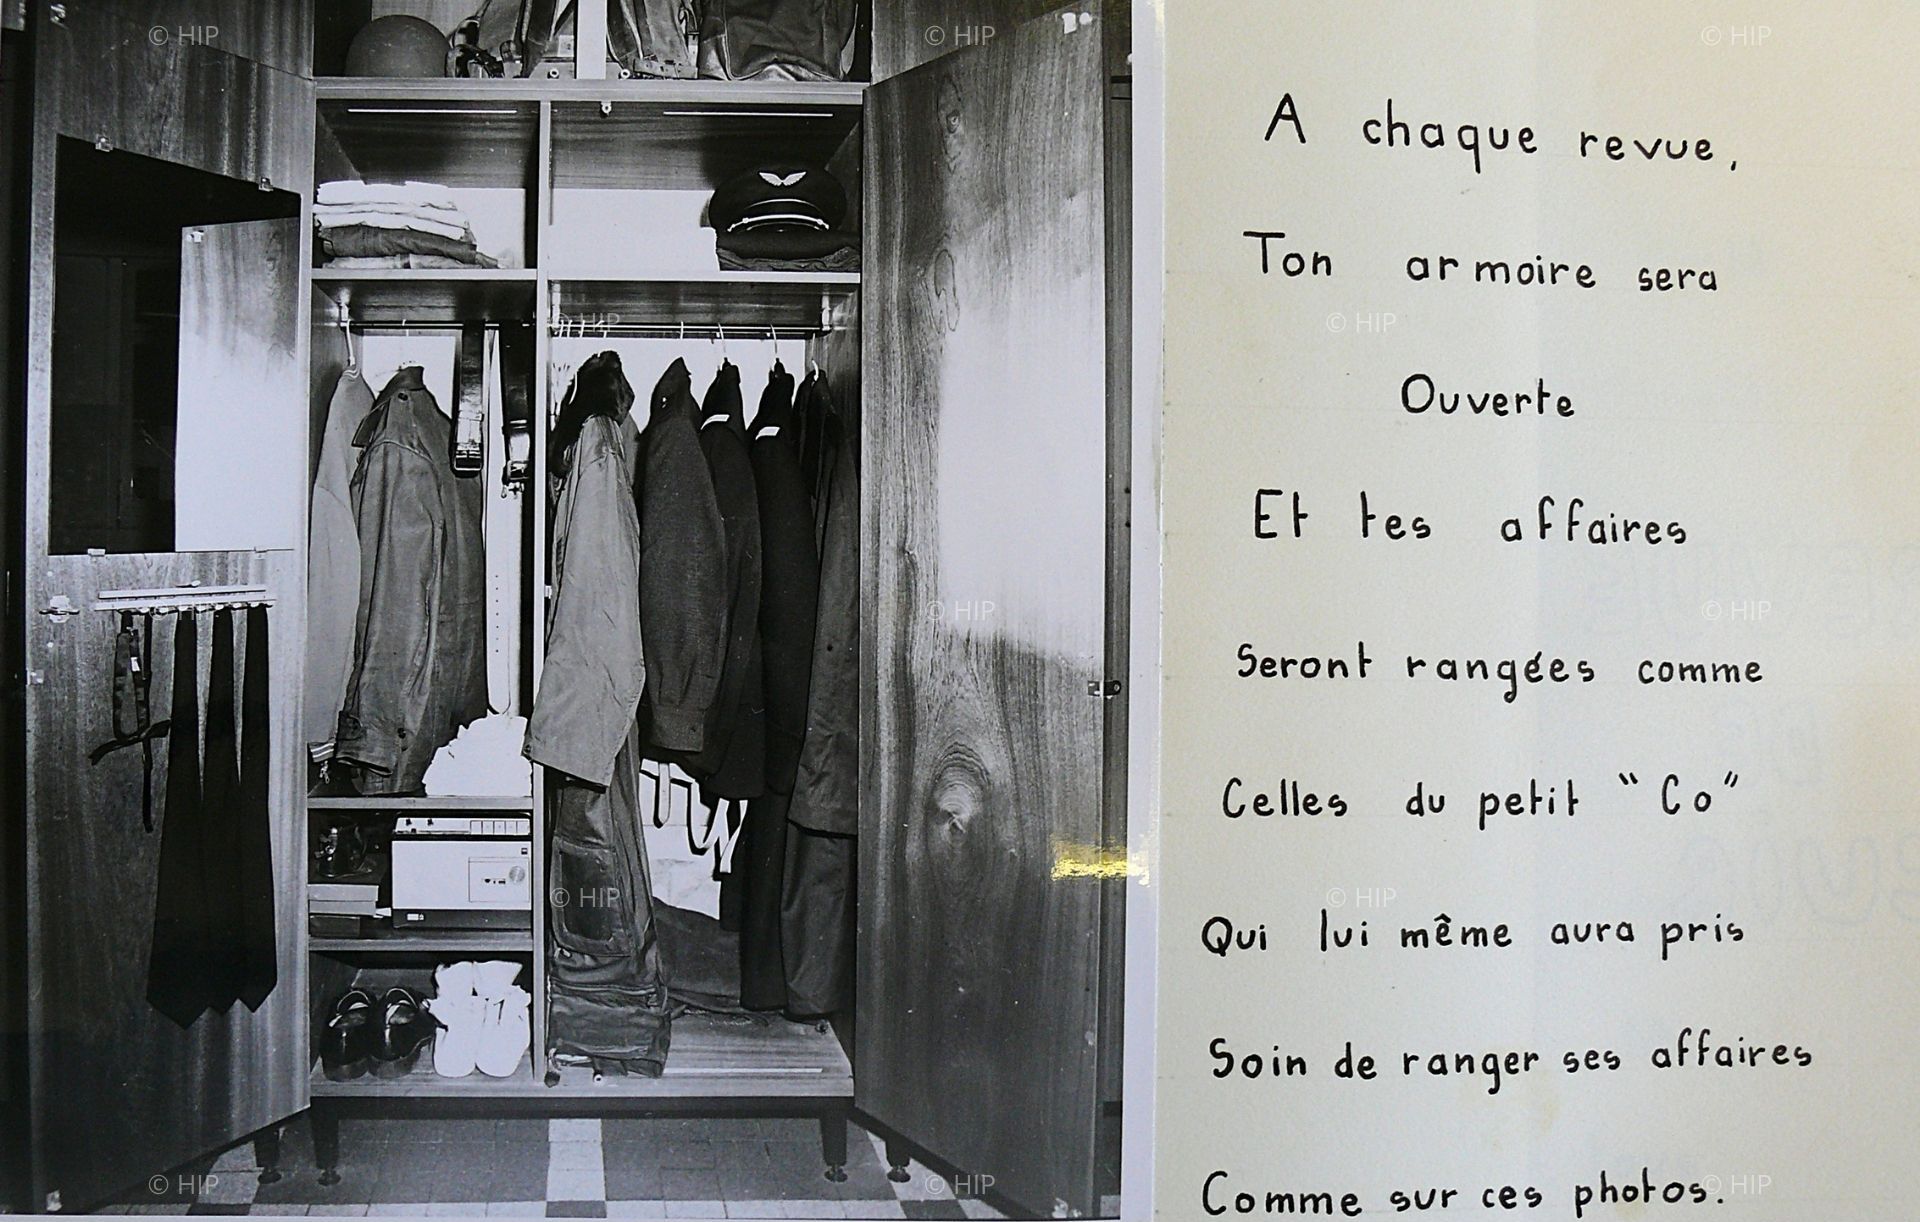 A chaque revue,
Ton armoire sera
Ouverte
Et tes affaires
Seront rangées comme
Celles du petit "Co"
Qui lui même aura pris
Soin de ranger ses affaires
Comme sur ces photos.
© HIP
© HIP
© HIP
© HIP
© HIP
© HIP
© HIP
© HIP
© HIP
© HIP
© HIP
© HIP